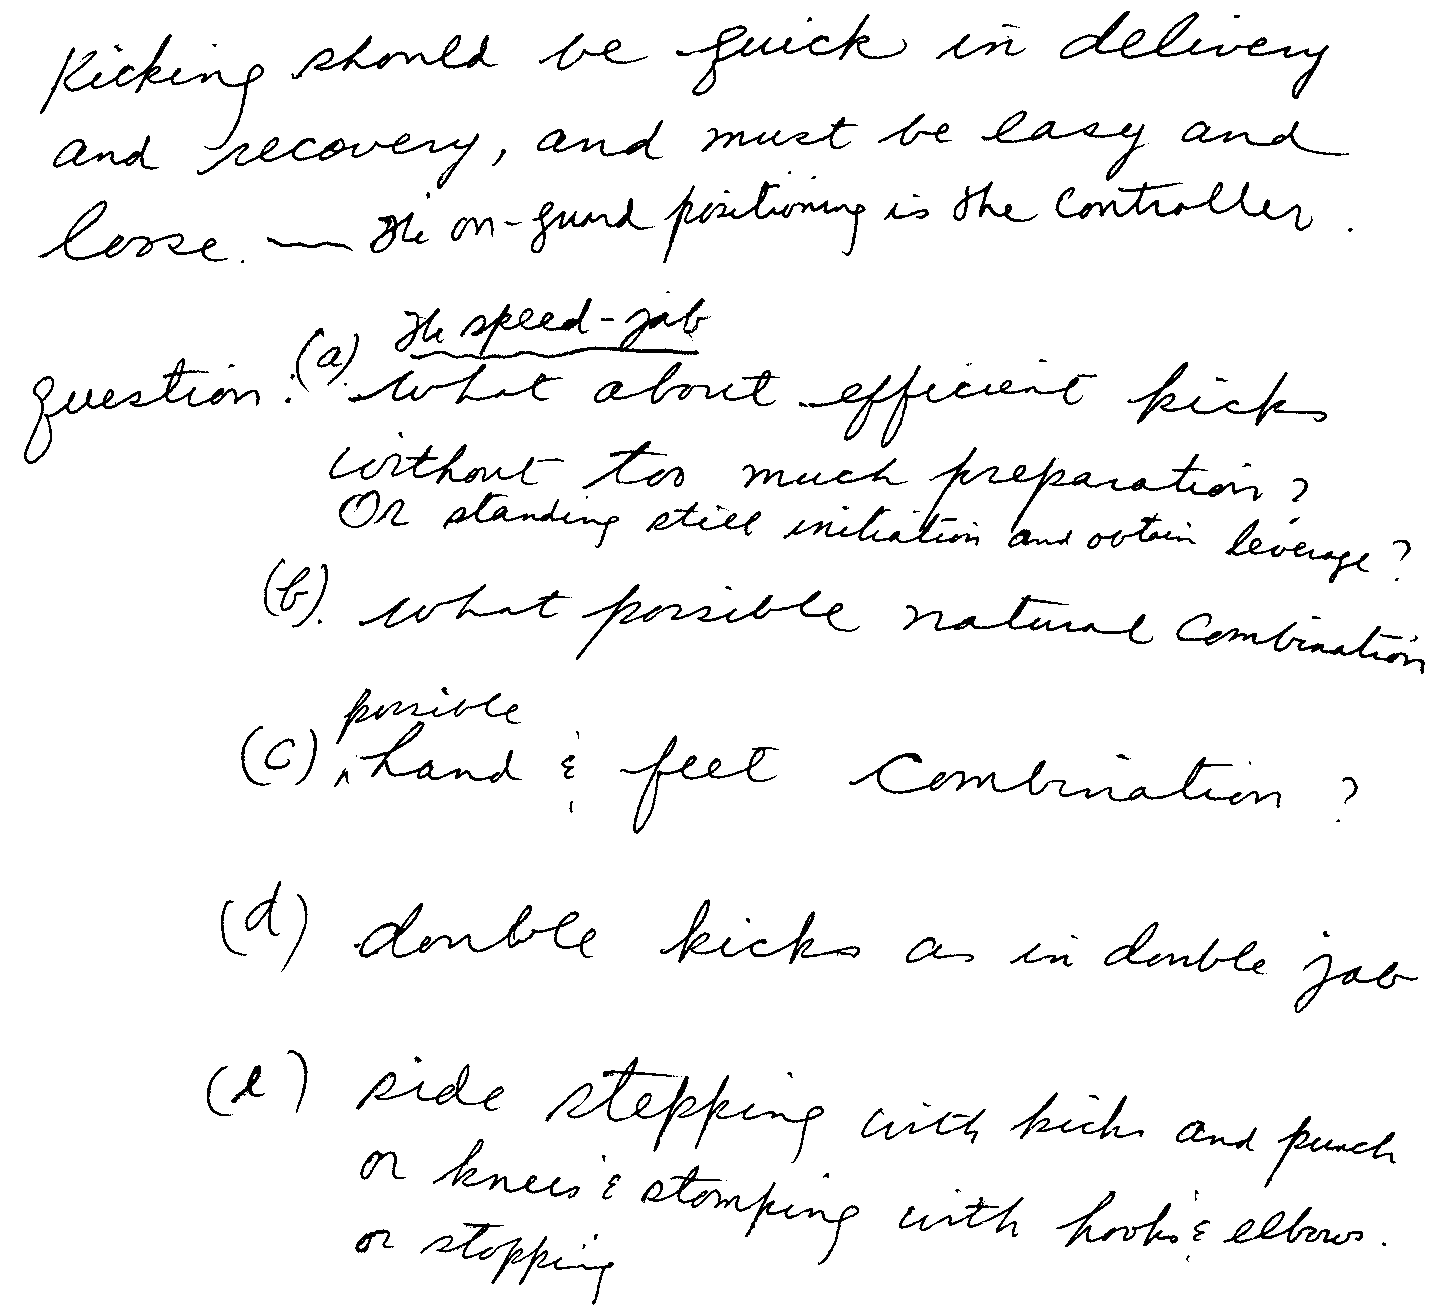 Kicking should be quick in delivery
and recovery, and must be easy and
loose. — the on-guard positioning is the controller.
the speed-jab
question: (a). what about efficient kicks
without too much preparation?
Or standing still initiation and obtain leverage?
(b). what possible natural combination
possible
(c) ^ hand & feet combination ?
(d) double kicks as in double jab
(e) side stepping with kicks and punch
or knees & stomping with hooks & elbows.
or stopping